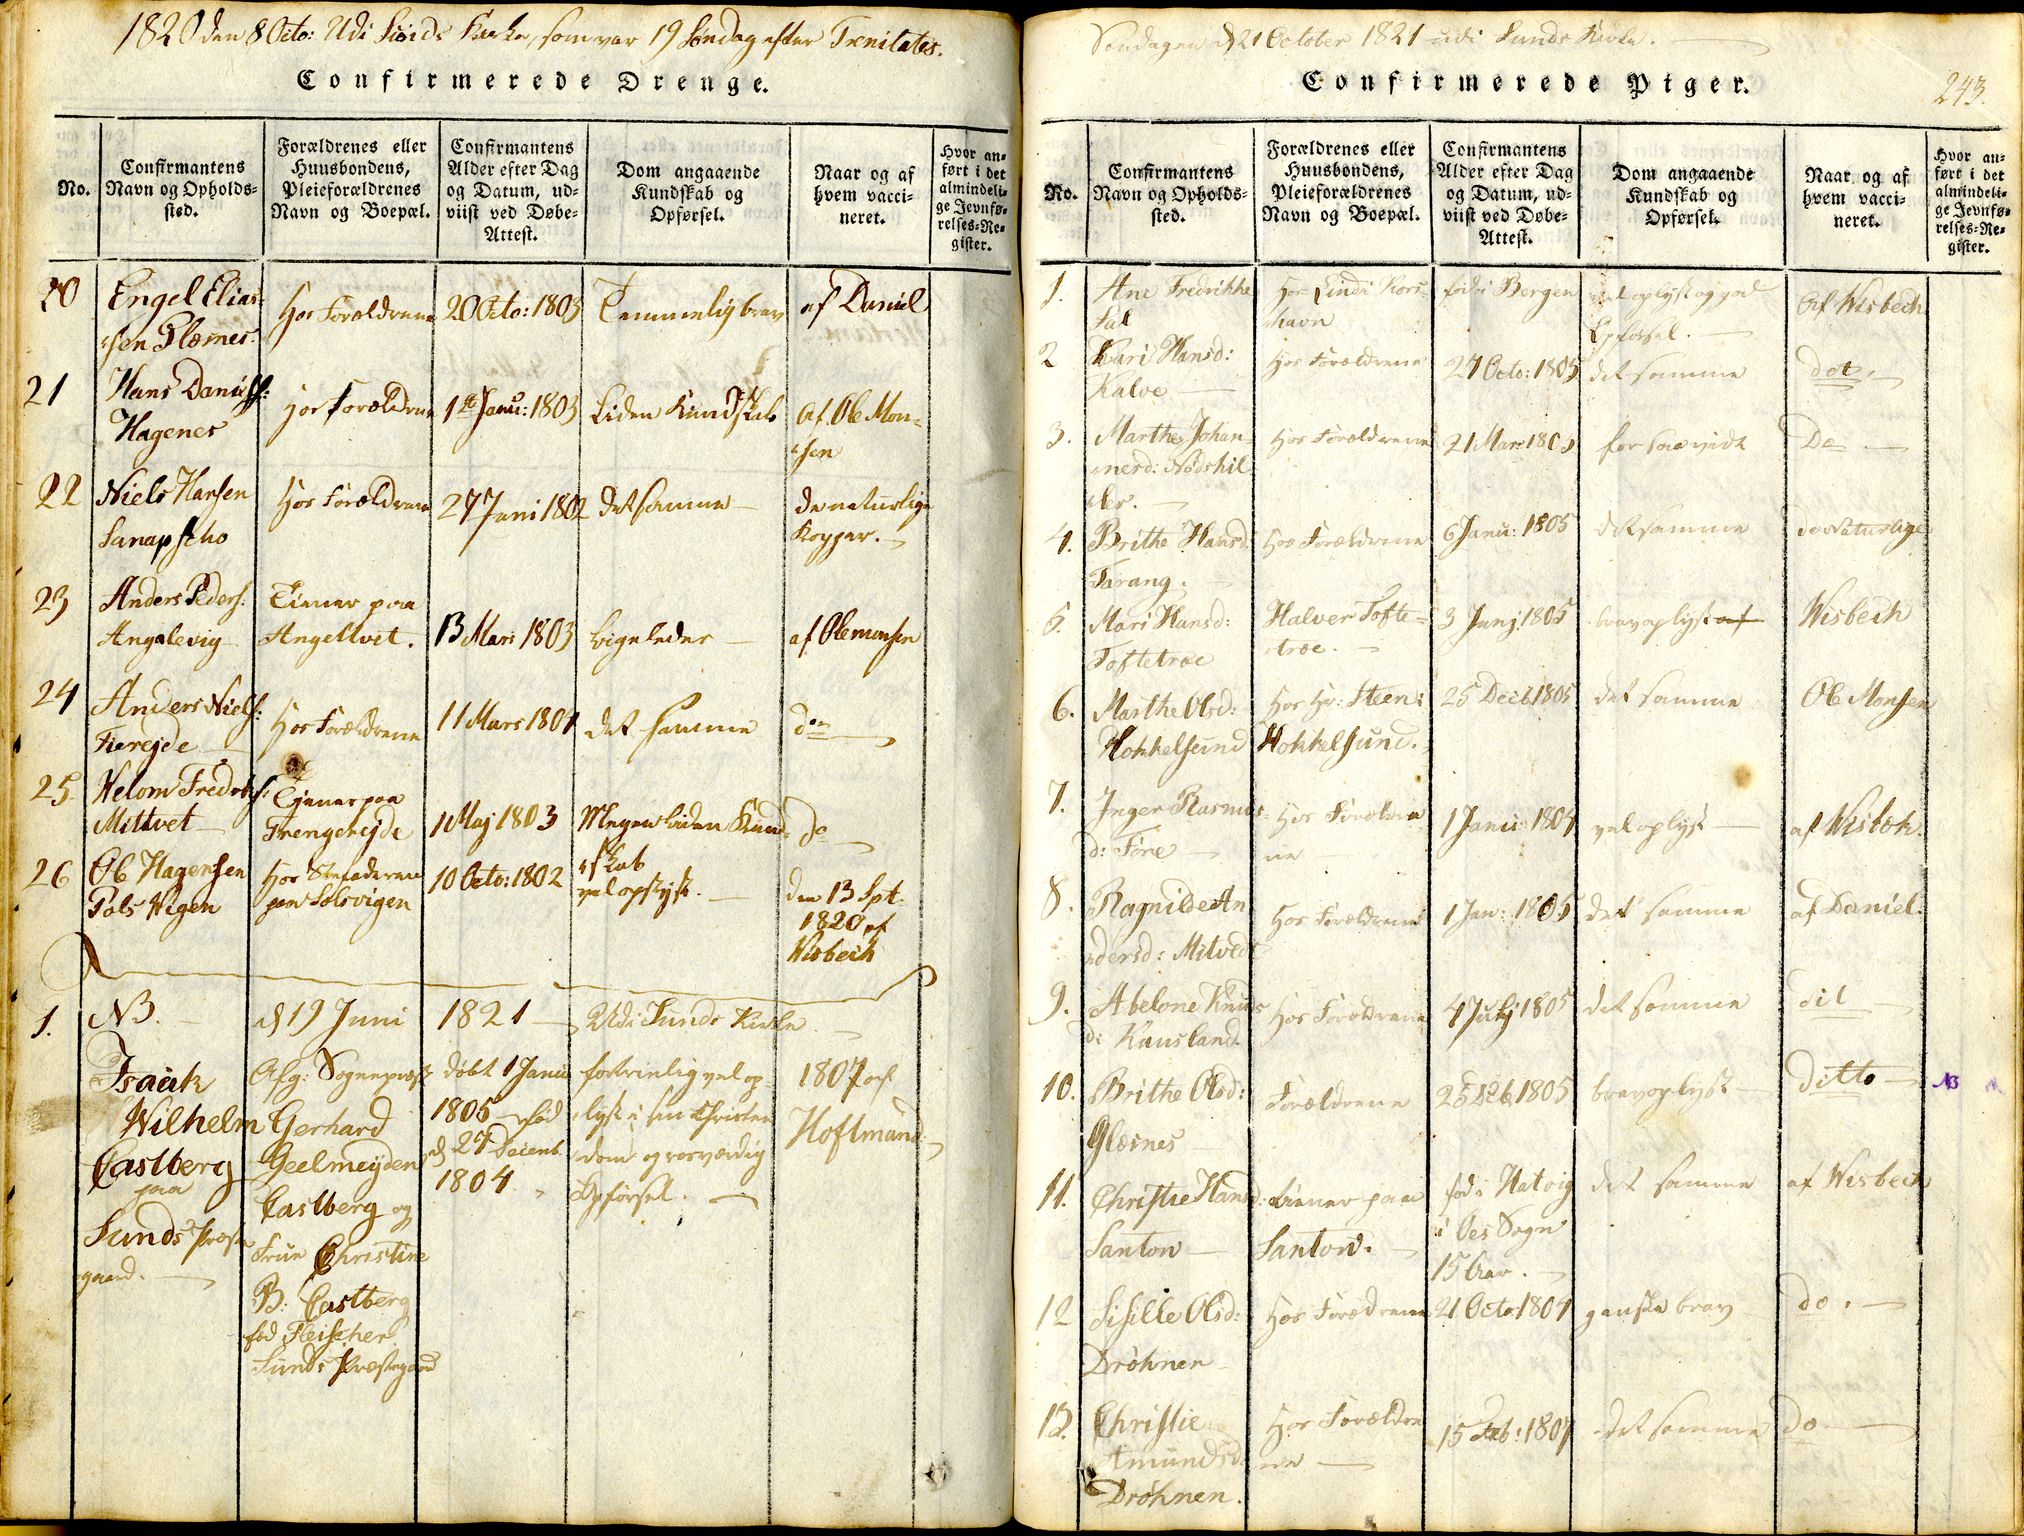 1820 den 8 Octo: Udi Kirke, som var 19 Søndag efter Trenitates.
Confirmerede Drenge.
No.
Confirmantens
Navn og Opholds-
sted.
Forældrenes eller
Huusbondens,
Pleieforældrenes
Navn og Boepæl.
Confirmantens
Alder efter Dag
og Datum, ud-
viist ved Døbe-
Attest.
Dom angaaende
Kundskab og
Opførsel.
Naar og af
hvem vacci-
neret.
Hvor an-
ført i det
almindeli-
ge Jevnfø-
relses-Re-
gister.
20
Engel Elias-
sen Glæsnes.
Hos Forældrene
20 Octo: 1803
Temmelig brav
af Daniel
21
Hans Daniels:
Hagenes
Hos Forældrene
1ste Janu: 1803
Liden Kundskab
af Ole Mon-
sen
22
Niels Hansen
Hos Forældrene
27 Juni 1802
det samme
de naturlige
Kopper.
23
Anders Peders:
Angalevig
Tiener paa
Angeltvet.
13 Mars 1803
Ligeledes
af Ole monsen
24
Anders Niels:
Hos Forældrene
11 Mars 1804
det samme
do
25.
Mittvet
Tjener paa
Trengereide
1 Maj 1803
Megen liden Kund-
skab
do
26
Ole Hagensen
Hos
paa Solsvigen
10 Octo: 1802
vel oplyst.
den 13 Spt.
1820 af
Wisbech
1.
NB.
d 19 Juni
1821
Udi Sunds Kirke
Isaak
Wilhelm
Castberg
paa
Sunds Præste
gaard.
Afg: Sognepræst
Gerhard
Geelmeyden
Castberg og
Frue Christine
B: Castberg
fød Fleischer
Sunds Præstegaard
døbt 1 Janu
1805 fød
d 27 Decemb.
1804
fortrinlig vel op-
lyst i sin Christen
dom og roesværdig
Opførsel.
1807 af
Hoftmand
Søndagen d 21 October 1821 udi Sunds Kirke.
Confirmerede Piger.
243.
No.
Confirmantens
Navn og Opholds-
sted.
Forældrenes eller
Huusbondens,
Pleieforældrenes
Navn og Boepæl.
Confirmantens
Alder efter Dag
og Datum, ud-
viist ved Døbe-
Attest.
Dom angaaende
Kundskab og
Opførsel.
Naar og af
hvem vacci-
neret.
Hvor an-
ført i det
almindeli-
ge Jevnfø-
relses-Re-
gister.
1.
Ane Fredrikke
Hos Lindi Kors-
havn
fød i Bergen
vel oplyst og god
Opførsel.
Af Wisbech
2
Kari Hansd:
Kalve
Hos Forældrene
27 Octo: 1805
det samme
det.
3.
Marthe Johan-
Hos Forældrene
21 Mars
forsaavidt
Do
4.
Brithe Hansd:
Tørang.
Hos Forældrene
6 Janu: 1805
det samme
de Naturlige
5.
Mari Hansd:
Toftetræe
Halver Tofte-
træe.
3 Junj 1805
brav oplyst
Wisbech
6.
Marthe Olsd:
Hokkelsund
Hos Hr: Steen:
Hokkelsund.
25 Decb 1805
det samme
Ole Monsen
7.
Inger Rasmus-
d: Føre
Hos Forældre
ne
1 Janu 1804
vel oplyst
af Wisbech.
8.
Ragnilde An
dersd: Mitvedt
Hos Forældrene
1 Jan: 1805
det samme
af Daniel.
9.
Abelone Knuds
d: Kausland
Hos Forældrene
4 July 1805
det samme
dit
10.
Brithe Olsd:
Glæsnes
Forældrene
25 Deb 1805
brav oplyst
Ditto
NB
11.
Christie Hansd:
Santow
Tiener paa
Santow.
fød i Hatvig
i Oes Sogn
15 Aar.
det samme
af Wisbech
12
Sisille Olsd:
Drøhnen
Hos Forældrene
21 Octo 1804
ganske brav
do.
13.
Christie
Amundsd:
Drøhnen.
Hos Forældre
ne
15 Feb: 1807
det samme
do